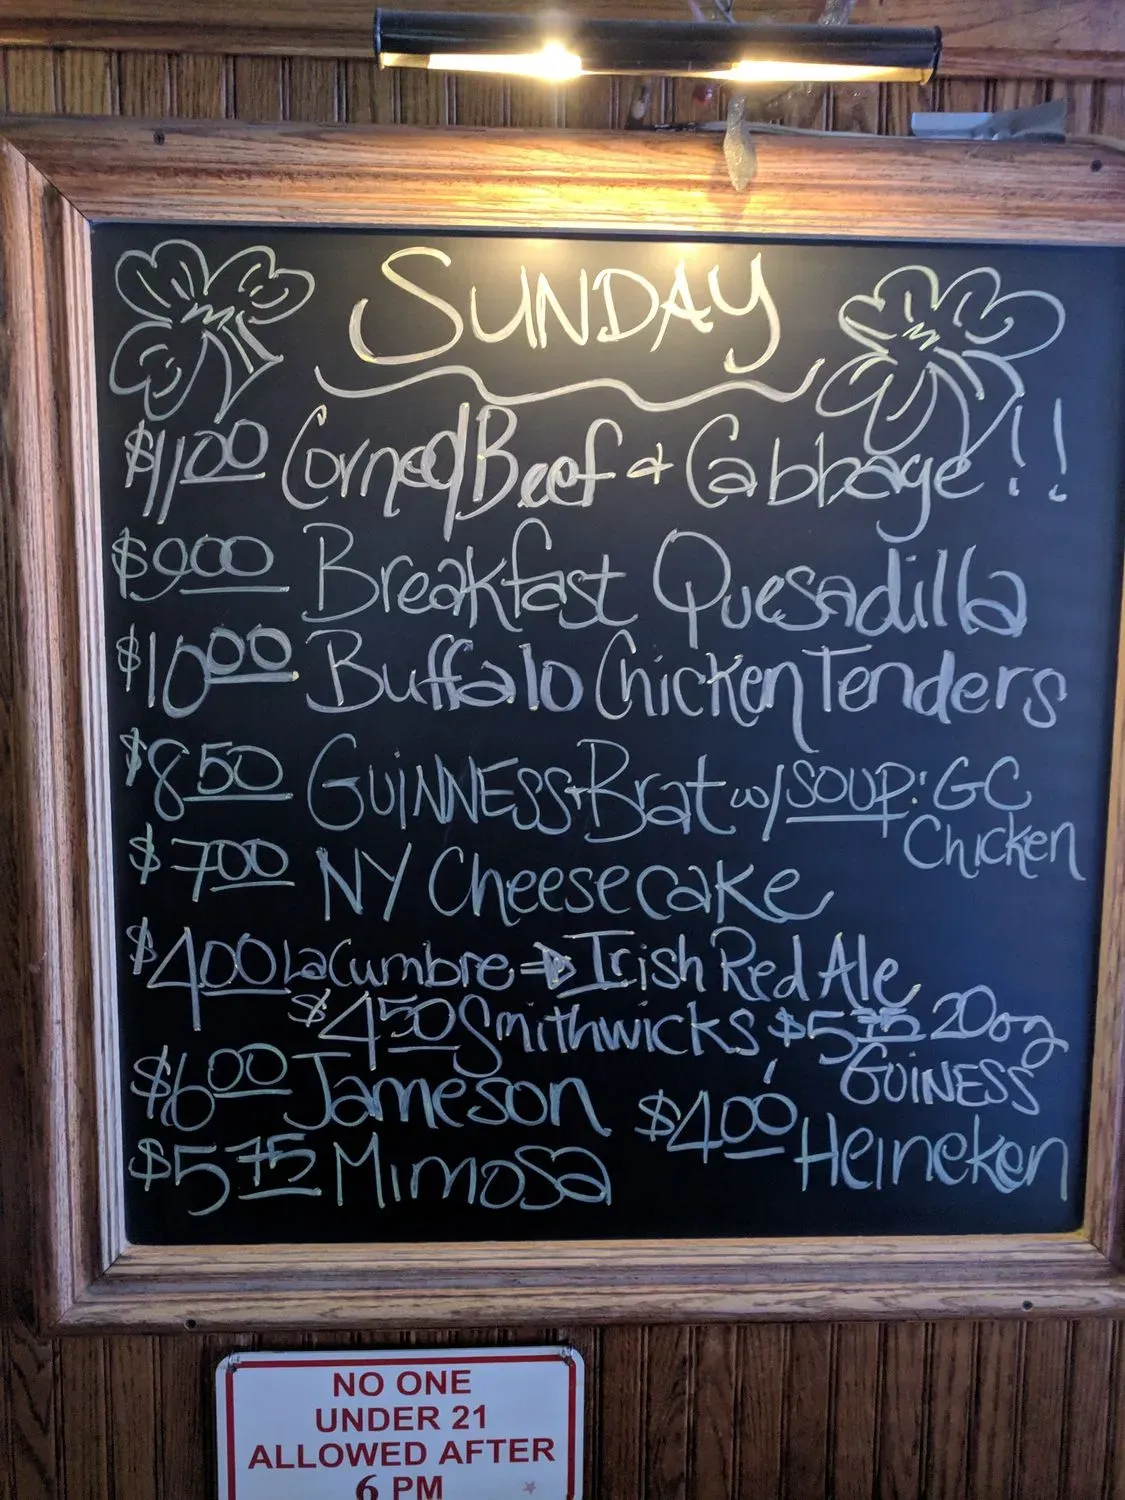 SUNDAY
$11.00 Corned Beef & Cabbage!!
$9.00 Breakfast Quesadilla
$10.00 Buffalo Chicken Tenders
$8.50 GUINNESS Brat w/ SOUP: GC
Chicken
$7.00 NY Cheesecake
$4.00 La Cumbre ⇒ Irish Red Ale
$4.50 Smithwicks $5.75 20oz
GUINESS
$6.00 Jameson $4.00 Heineken
$5.75 Mimosa
NO ONE
UNDER 21
ALLOWED AFTER
6 PM